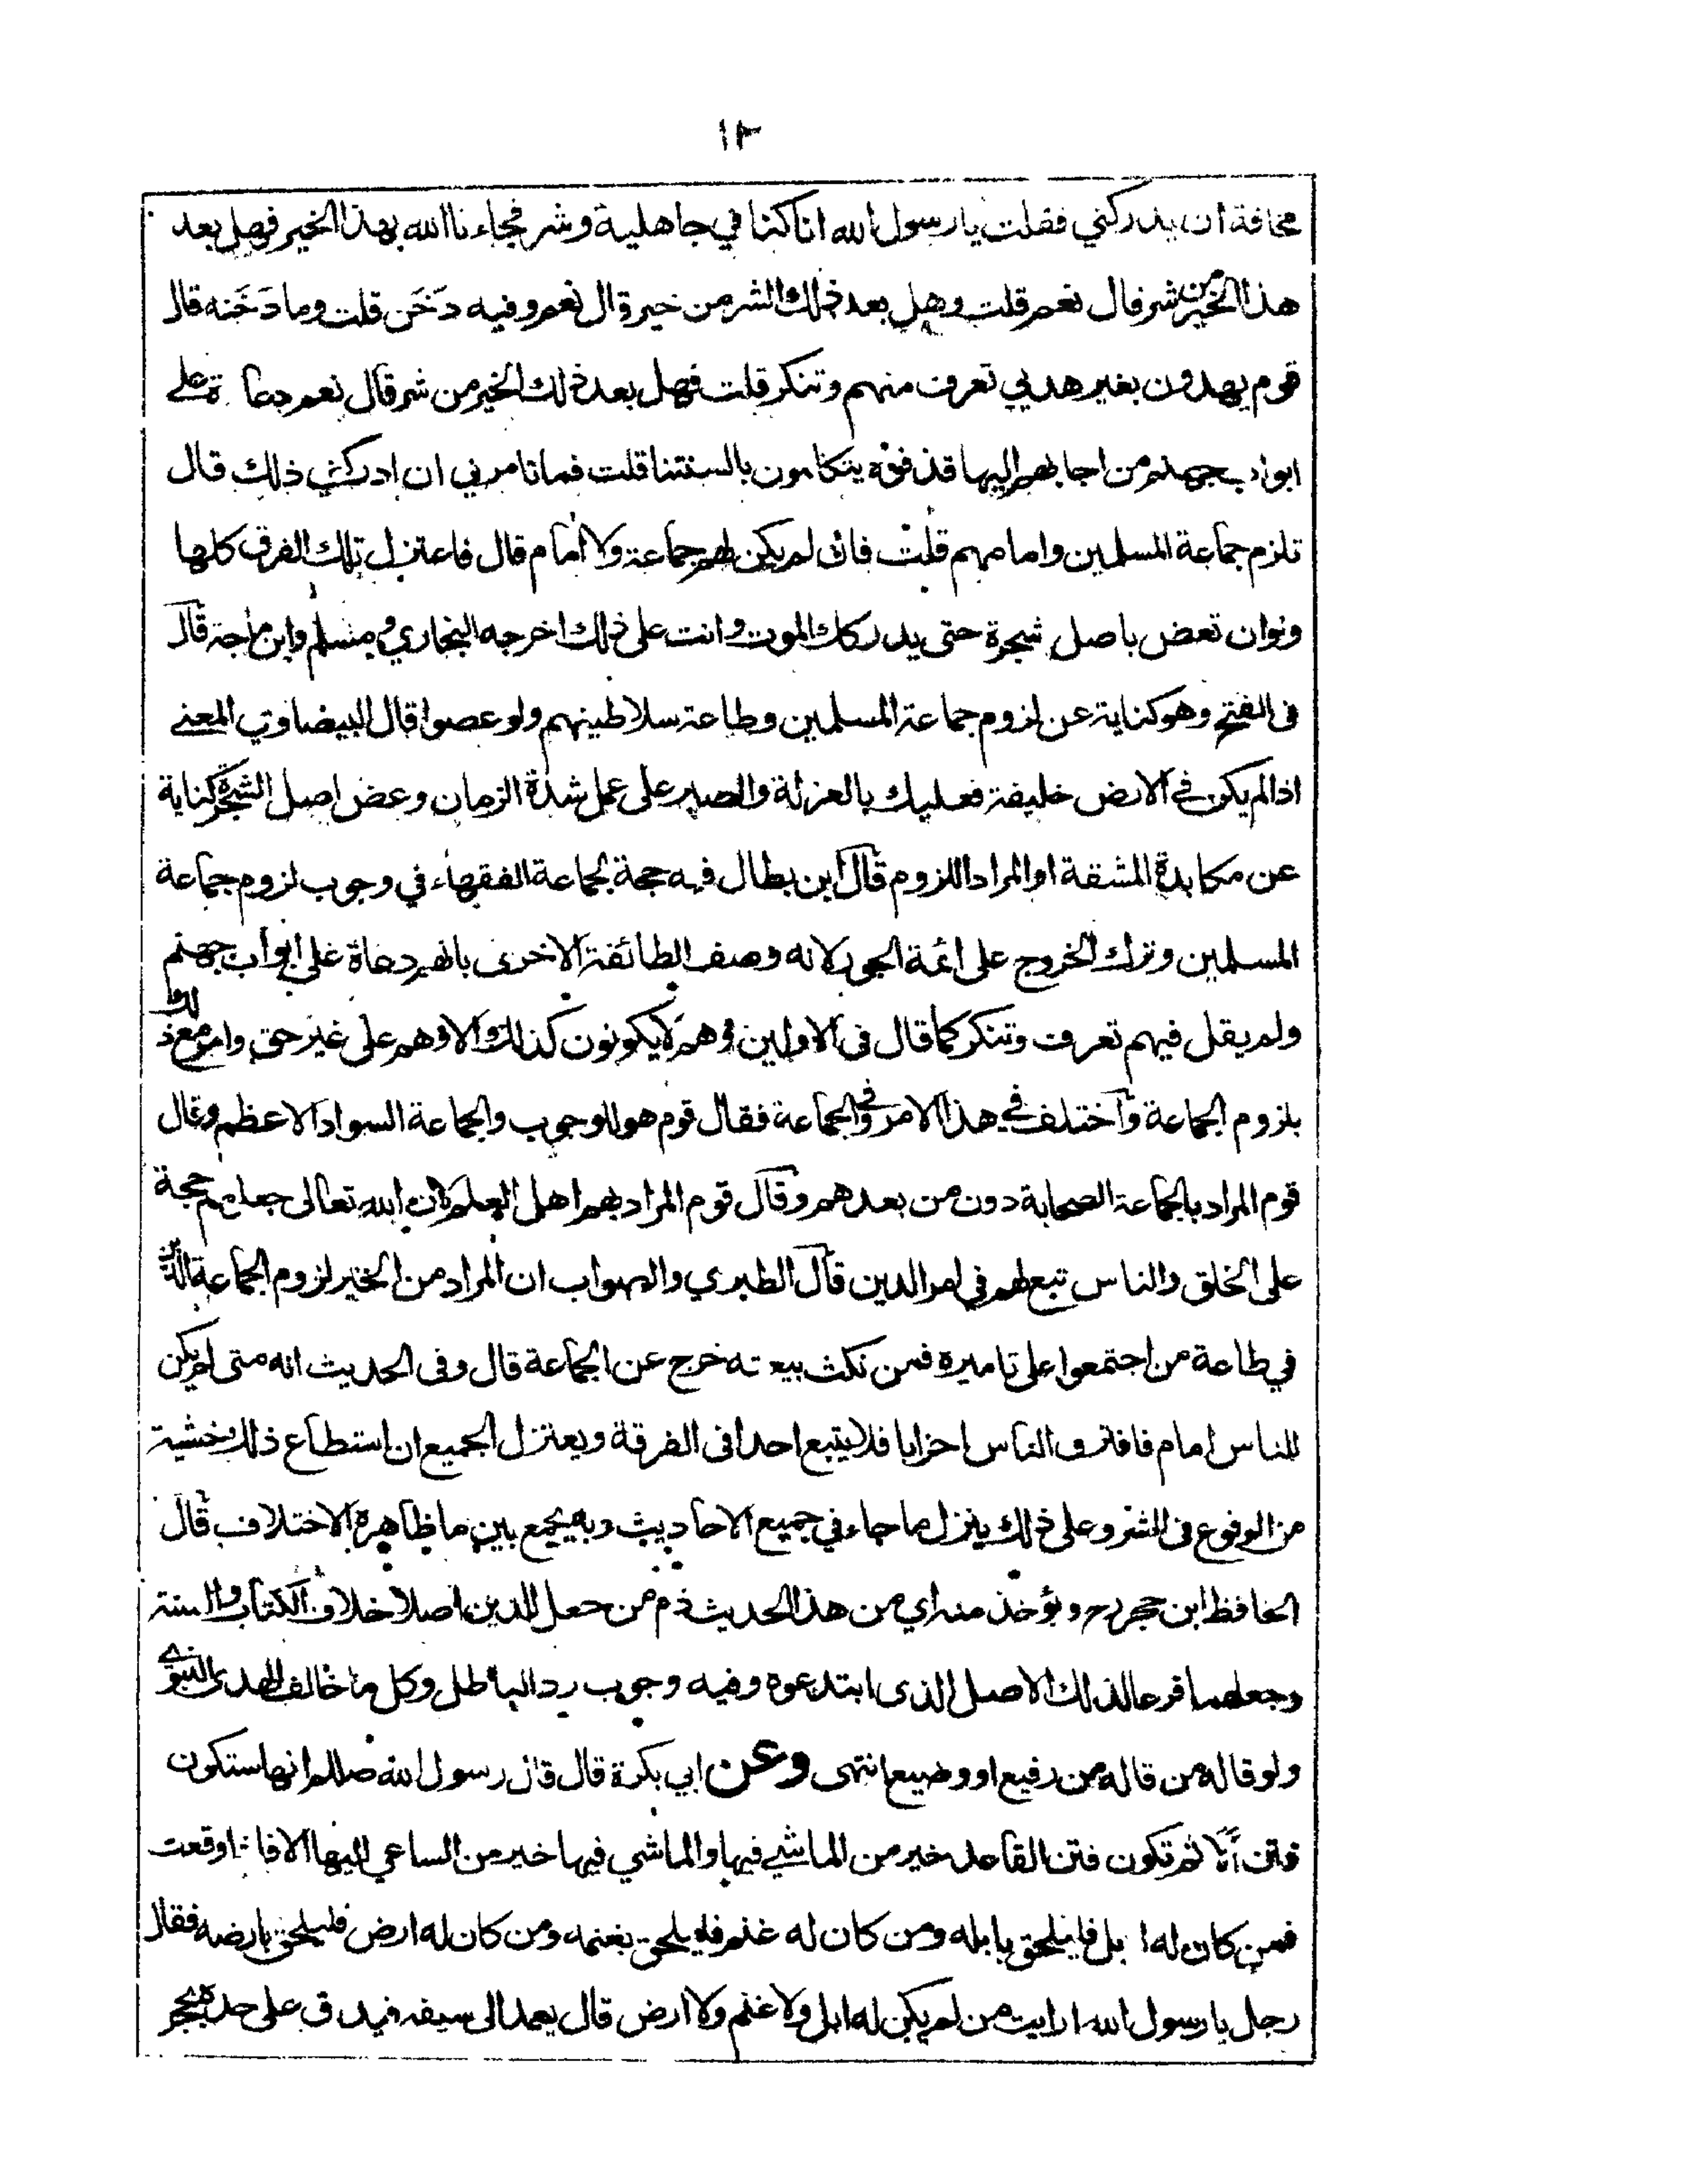 ١٢
مخافة ان يدركني فقلت يا رسول الله انا كنا في جاهلية وشر فجاءنا الله بهذا الخير فهل بعد
هذا الخير من شر قال نعم قلت وهل بعد ذلك الشر من خير قال نعم وفيه دَخَن قلت وما دَخَنه قال
قوم يهدون بغير هديي تعرف منهم وتنكر قلت فهل بعد ذلك الخير من شر قال نعم دعاة على
ابواب جهنم من اجابهم اليها قذفوه يتكلمون بالسنتنا قلت فما تامرني ان ادركني ذلك قال
تلزم جماعة المسلمين وامامهم قلت فان لم يكن لهم جماعة ولا امام قال فاعتزل تلك الفرق كلها
ولو ان تعض باصل شجرة حتى يدركك الموت وانت على ذلك اخرجه البخاري ومسلم وابن ماجة قال
فى الفتح وهو كناية عن لزوم جماعة المسلمين وطاعة سلاطينهم ولو عصوا قال البيضاوي المعنى
اذا لم يكن في الارض خليفة فعليك بالعزلة والصبر على عمل شدة الزمان وعض اصل الشجرة كناية
عن مكابدة المشقة او المراد اللزوم قال ابن بطال فيه حجة لجماعة الفقهاء في وجوب لزوم جماعة
المسلمين وترك الخروج على ائمة الجور لانه وصف الطائفة الاخرى بانهم دعاة على ابواب جهنم
ولم يقل فيهم تعرف وتنكر كما قال فى الاولين وهم لا يكونون كذلك الا وهم على غير حق وامر مع ذلك
بلزوم الجماعة واختلف في هذا الامر وفي الجماعة فقال قوم هو للوجوب والجماعة السواد الاعظم وقال
قوم المراد بالجماعة الصحابة دون من بعدهم وقال قوم المراد بهم اهل العلم لان الله تعالى جعلهم حجة
على الخلق والناس تبع لهم في امر الدين قال الطبري والصواب ان المراد من الخبر لزوم الجماعة الذين
في طاعة من اجتمعوا على تاميره فمن نكث بيعته خرج عن الجماعة قال وفى الحديث انه متى لم يكن
للناس امام فافترق الناس احزابا فلا يتبع احدا فى الفرقة ويعتزل الجميع ان استطاع ذلك خشية
من الوقوع فى الشر وعلى ذلك ينزل ما جاء في جميع الاحاديث وبه يجمع بين ما ظاهره الاختلاف قال
الحافظ ابن حجر رح ويؤخذ منه اي من هذا الحديث ذم من جعل للدين اصلا خلاف الكتاب والسنة
وجعلهما فرعا لذلك الاصل الذى ابتدعوه وفيه وجوب رد الباطل وكل ما خالف الهدى النبوي
ولو قاله من قاله من رفيع او وضيع انتهى وعن ابي بكرة قال قال رسول الله صللم انها ستكون
فتن ألا ثم تكون فتن القاعد خير من الماشي فيها والماشي فيها خير من الساعي اليها الا فاذا وقعت
فمن كان له ابل فليلحق بابله ومن كان له غنم فليلحق بغنمه ومن كان له ارض فليلحق بارضه فقال
رجل يا رسول الله ارايت من لم يكن له ابل ولا غنم ولا ارض قال يعمد الى سيفه فيدق على حده بحجر